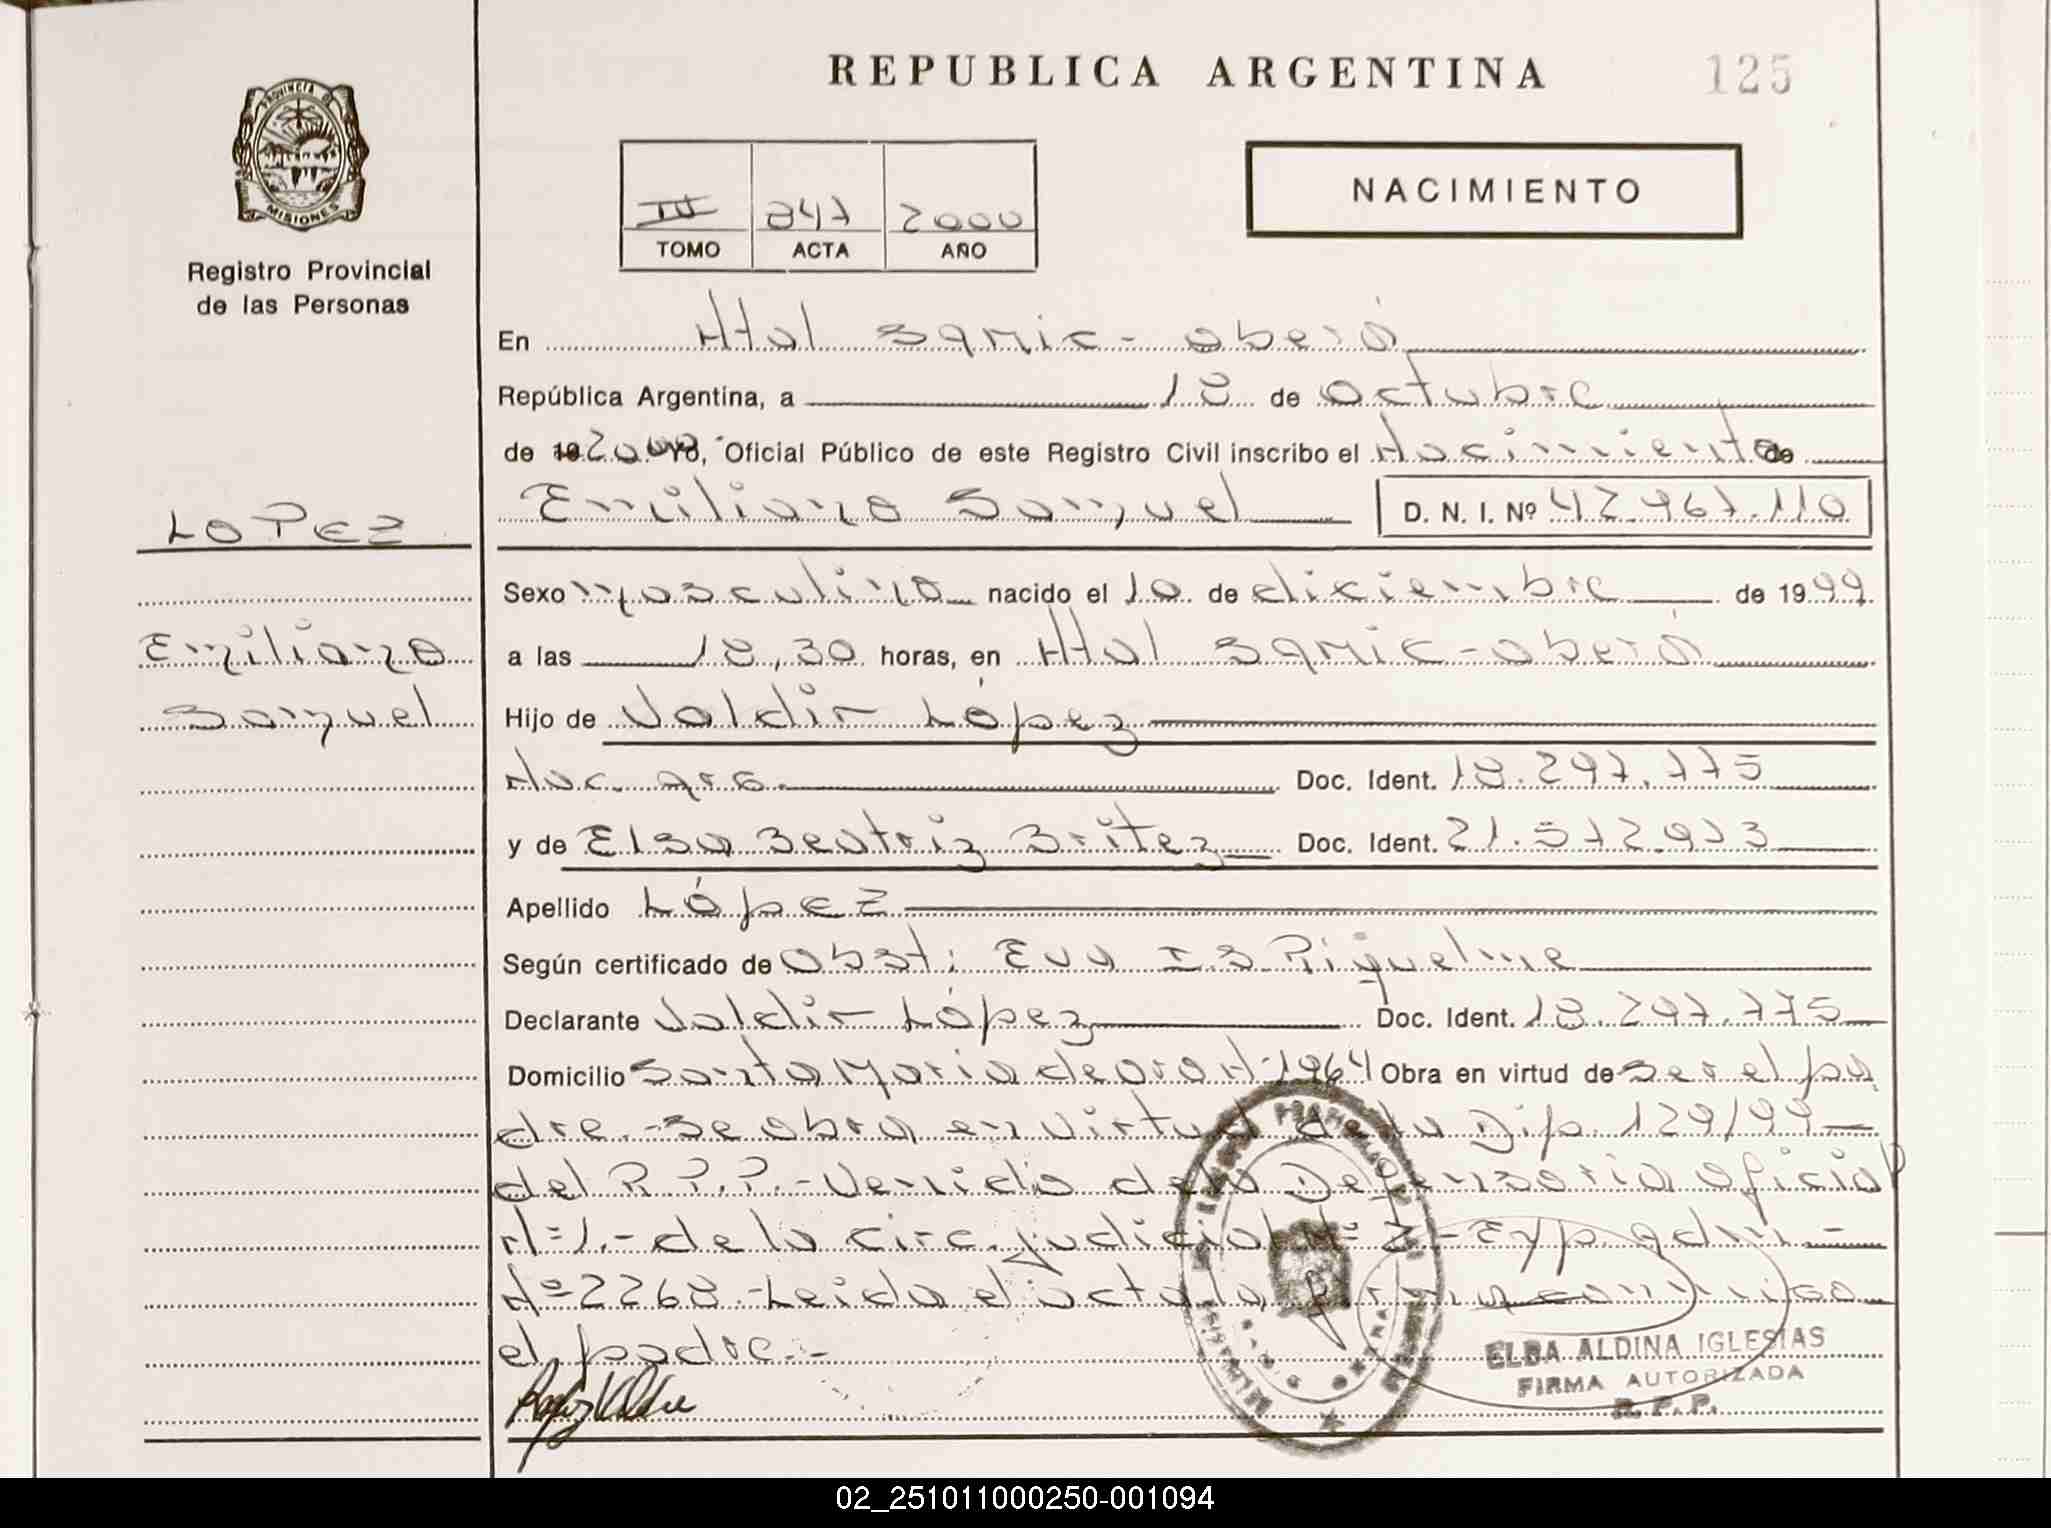 REPUBLICA ARGENTINA
125
PROVINCIA DE
MISIONES
Registro Provincial
de las Personas
III 847 2000
TOMO ACTA AÑO
NACIMIENTO
En Htal SAMIC - Oberá
República Argentina, a 18 de Octubre
de 19 2000 Yo, Oficial Público de este Registro Civil inscribo el Nacimiento de
Emiliano Samuel D. N. I. Nº 42.967.110
LOPEZ
Emiliano
Samuel
Sexo Masculino nacido el 10 de diciembre de 1999
a las 18,30 horas, en Htal SAMIC - Oberá
Hijo de Valdir López
Nac. Arg. Doc. Ident. 18.297.775
y de Elsa Beatriz Britez Doc. Ident. 21.572.933
Apellido López
Según certificado de Obst: Eva I. S. Riquelme
Declarante Valdir López Doc. Ident. 18.297.775
Domicilio Santa Maria de Oro Nº 1964 Obra en virtud de ser el pa
dre.- Se obra en virtud de la Dip. 129/99
del R.P.P.- Venido de la Defensoria Oficial
Nº 1.- de la circ. judicial Nº 2 - Exp. Adm.-
Nº 2268.- Leida el acta la firma conmigo
el padre.-
ELBA ALDINA IGLESIAS
FIRMA AUTORIZADA
R. P. P.
02_251011000250-001094